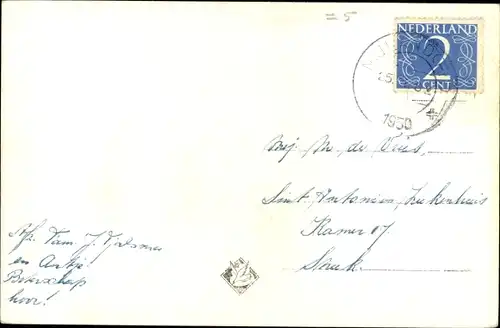 = 5
NEDERLAND
2
CENT
1950
Mej. M. de Vries,
Sint Antonius Ziekenhuis
Kamer 17
Sneek
Afz. Fam. J.
en Antje
Beterschap
hoor!